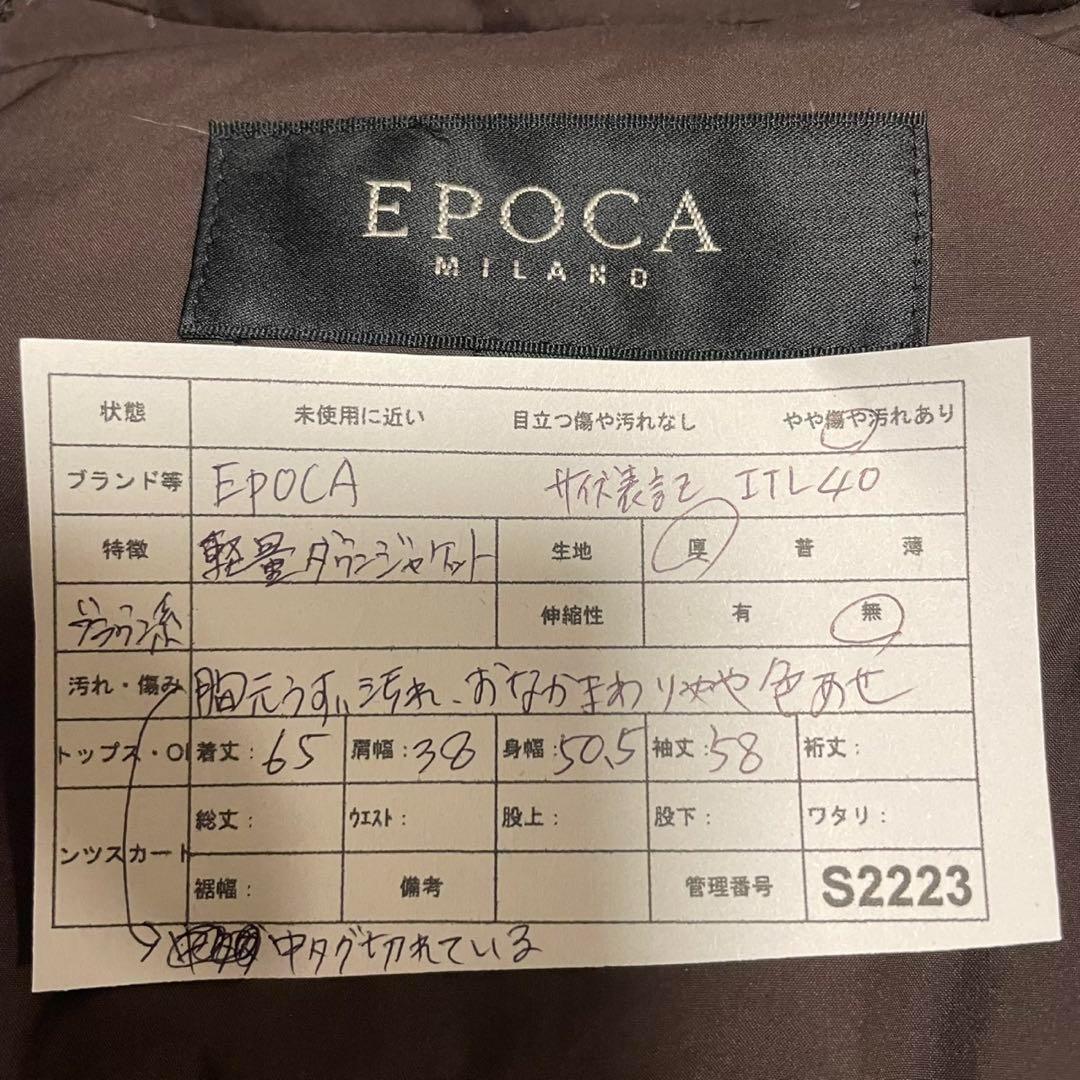 EPOCA
MILANO
状態 未使用に近い 目立つ傷や汚れなし やや傷や汚れあり
ブランド等 EPOCA サイズ表記 ITL40
特徴 軽量ダウンジャケット 生地 厚 普 薄
ブラウン系 伸縮性 有 無
汚れ・傷み 胸元うすい汚れ、おなかまわりやや色あせ
トップス・OP 着丈:65 肩幅:38 身幅:50.5 袖丈:58 裄丈:
総丈: ウエスト: 股上: 股下: ワタリ:
ンツスカート
裾幅: 備考 管理番号 S2223
中タグ切れている